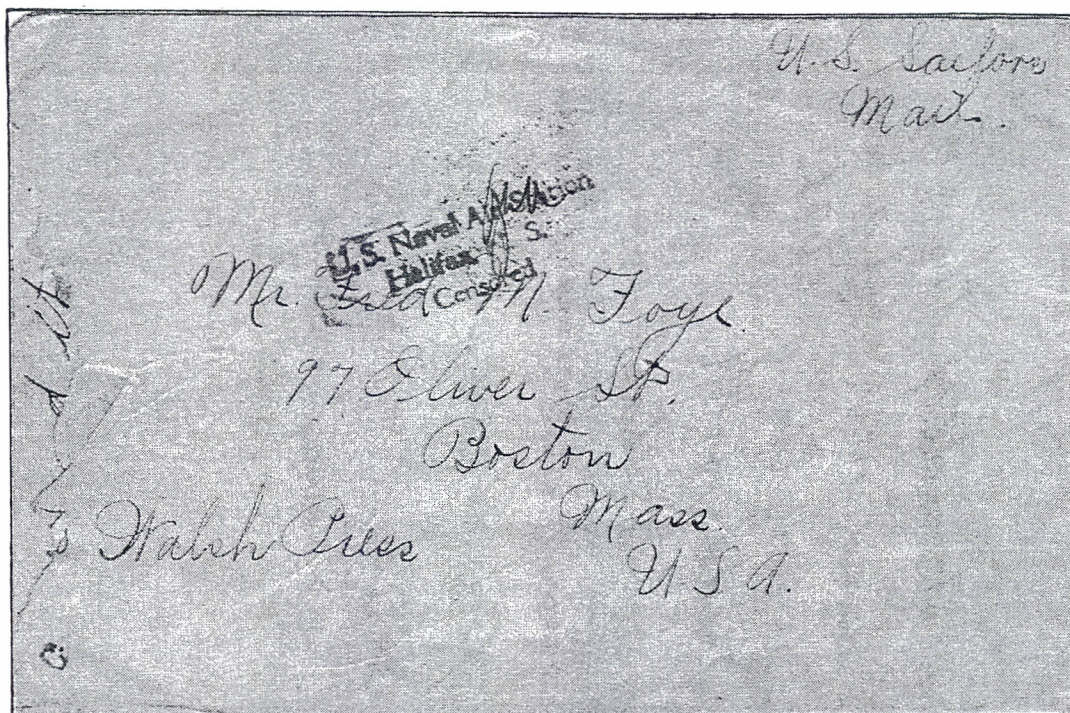 U.S. Sailors
Mail.
U.S. Naval Air Station
Halifax N. S.
Censored
Mr. Fred M. Foye.
97 Oliver St.
Boston
Mass.
U S A.
Walsh Press